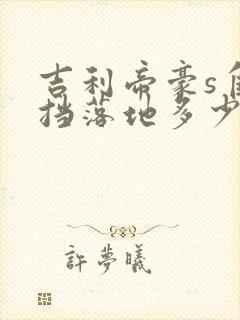 吉利帝豪s自
挡落地多少
許夢曦